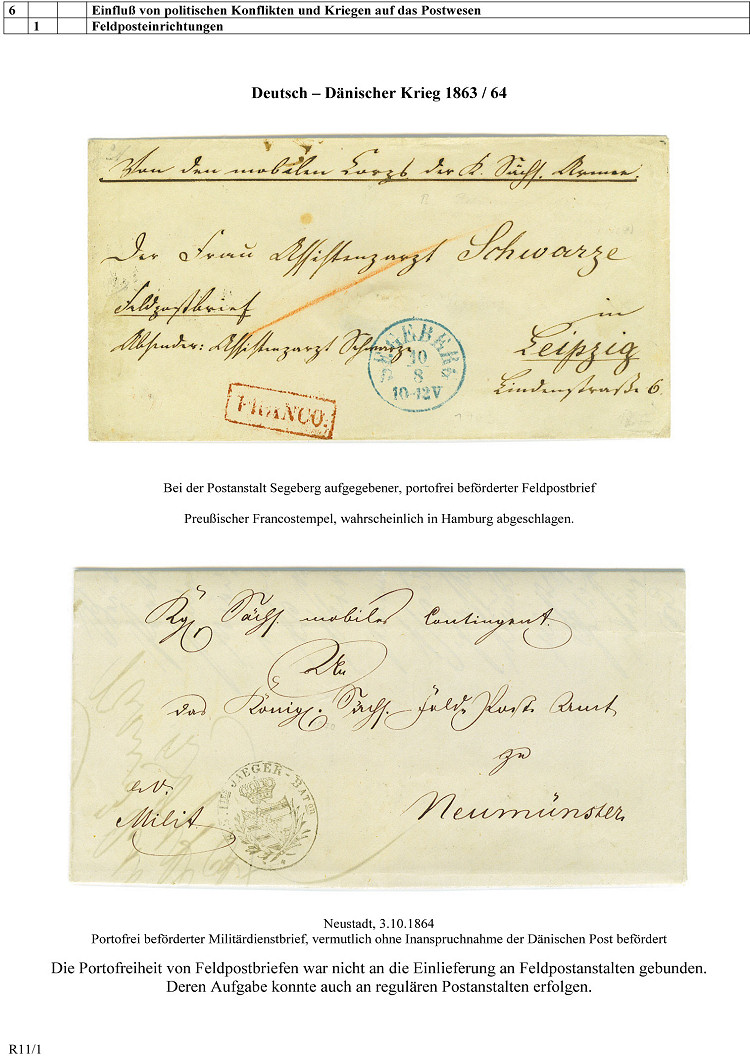 6 Einfluß von politischen Konflikten und Kriegen auf das Postwesen
1 Feldposteinrichtungen
Deutsch – Dänischer Krieg 1863 / 64
Von den mobilen Corps der K. Sächs. Armee.
Der Frau Assistenzarzt Schwarze
Feldpostbrief
in
Absender: Assistenzarzt Schwarze
Leipzig
Lindenstraße 6.
SEGEBERG
10
8
10-12V
FRANCO.
Bei der Postanstalt Segeberg aufgegebener, portofrei beförderter Feldpostbrief
Preußischer Francostempel, wahrscheinlich in Hamburg abgeschlagen.
Kgl. Sächs. mobiles Contingent.
An
das Königl. Sächs. Feld Post Amt
zu
Neumünster
Milit
JAEGER-BATON
Neustadt, 3.10.1864
Portofrei beförderter Militärdienstbrief, vermutlich ohne Inanspruchnahme der Dänischen Post befördert
Die Portofreiheit von Feldpostbriefen war nicht an die Einlieferung an Feldpostanstalten gebunden.
Deren Aufgabe konnte auch an regulären Postanstalten erfolgen.
R11/1